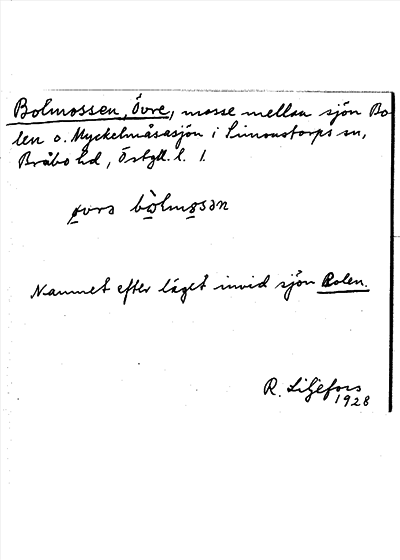 Bolmossen, Övre, mosse mellan sjön Bo-
len o. Myckelmåsasjön i Simonstorps sn,
Bråbo hd, Östgll. l. 1.
øvrə bòlmɷsən
Namnet efter läget invid sjön Bolen.
R. Liljefors
1928